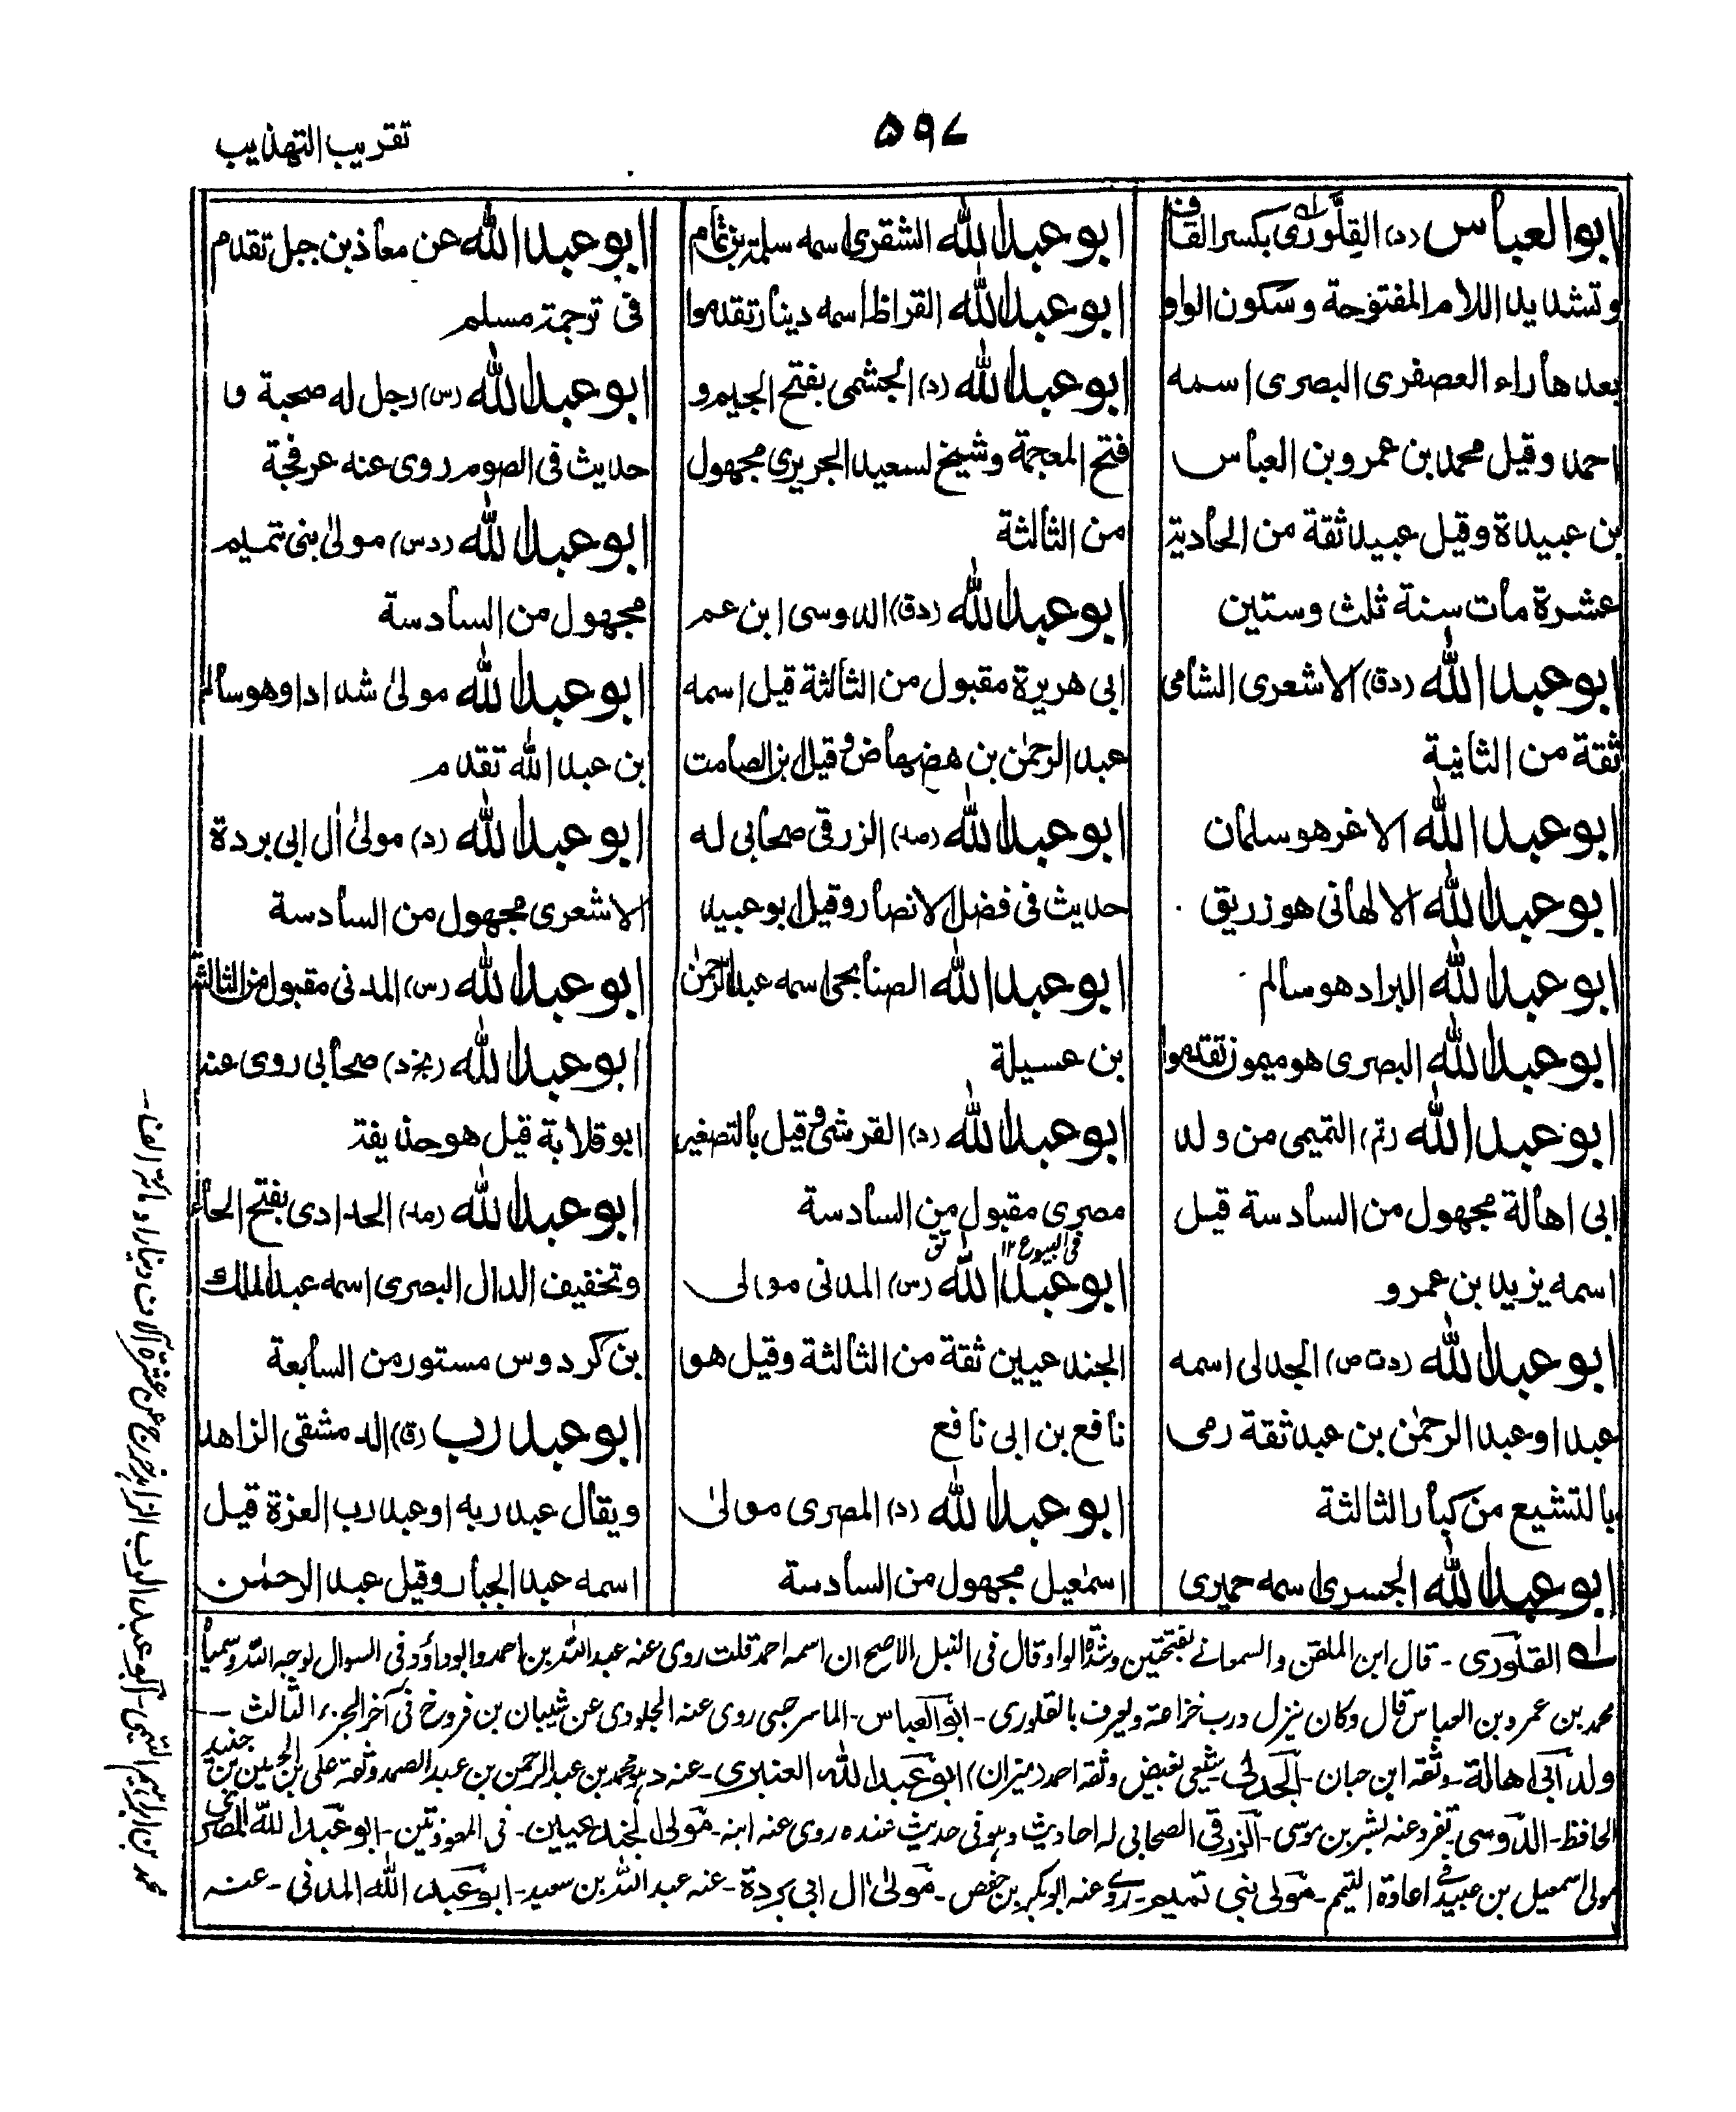 تقريب التهذيب
۵۹۷
ابو العباس (د) القِلَّوْرى بكسر القاف
وتشديد اللام المفتوحة وسكون الواو
بعدها راء العصفرى البصرى اسمه
احمد وقيل محمد بن عمرو بن العباس
بن عبيدة وقيل عبيد ثقة من الحادية
عشرة مات سنة ثلث وستين
ابو عبد الله (دق) الاشعرى الشامى
ثقة من الثانية
ابو عبد الله الاغر هو سلمان
ابو عبد الله الالهانى هو زريق
ابو عبد الله البراد هو سالم
ابو عبد الله البصرى هو ميمون تقدموا
ابو عبد الله (تم) التميمى من ولد
ابى اهالة مجهول من السادسة قيل
اسمه يزيد بن عمرو
ابو عبد الله (دت ص) الجدلى اسمه
عبد او عبد الرحمٰن بن عبد ثقة رمى
بالتشيع من كبار الثالثة
ابو عبد الله الجسرى اسمه حميرى
ابو عبد الله الشقرى اسمه سلمة بن تمام
ابو عبد الله القراظ اسمه دينار تقدموا
ابو عبد الله (د) الجشمى بفتح الجيم و
فتح المعجمة وشيخ لسعيد الجريرى مجهول
من الثالثة
ابو عبد الله (دق) الدوسى ابن عم
ابى هريرة مقبول من الثالثة قيل اسمه
عبد الرحمٰن بن هضهاض وقيل ابن الصامت
ابو عبد الله (مد) الزرقى صحابى له
حديث فى فضل الانصار وقيل ابو عبيد
ابو عبد الله الصنابحى اسمه عبد الرحمٰن
بن عسيلة
ابو عبد الله (د) القرشى وقيل بالتصغير
مصرى مقبول من السادسة
فى البيوع ١٢ تق
ابو عبد الله (س) المدنى مولى
الجندعيين ثقة من الثالثة وقيل هو
نافع بن ابى نافع
ابو عبد الله (د) المصرى مولىٰ
اسمٰعيل مجهول من السادسة
ابو عبد الله عن معاذ بن جبل تقدم
فى ترجمة مسلم
ابو عبد الله (س) رجل له صحبة و
حديث فى الصوم روى عنه عرفجة
ابو عبد الله (دس) مولىٰ بنى تميم
مجهول من السادسة
ابو عبد الله مولىٰ شداد وهو سالم
بن عبد الله تقدم
ابو عبد الله (د) مولىٰ اٰل ابى بردة
الاشعرى مجهول من السادسة
ابو عبد الله (س) المدنى مقبول من الثالثة
ابو عبد الله (بخ د) صحابى روى عنه
ابو قلابة قيل هو حذيفة
ابو عبد الله (مد) الحدادى بفتح الحاء
وتخفيف الدال البصرى اسمه عبد الملك
بن كردوس مستور من السابعة
ابو عبد رب (ق) الدمشقى الزاهد
ويقال عبد ربه او عبد رب العزة قيل
اسمه عبد الجبار وقيل عبد الرحمٰن
لـه القلَوّرى - قال ابن الملقن والسمعانے بفتحتين وشدة الواو وقال فى النبل الاصح ان اسمه احمد قلت روى عنه عبد الله بن احمد وابوداؤد فى السوال لوجه الله وسمياه
محمد بن عمرو بن العباس قال وكان ينزل درب خزاعة ويعرف بالقلورى - ابو العباس - الماسرجسى روى عنه الجلودى عن شيبان بن فروخ فى آخر الجزء الثالث -
ولد ابى اهالة - وثقه ابن حبان - الجدلى شيعى بغيض وثقه احمد (ميزان) ابو عبد الله العنبرى - عنه د هو محمد بن عبد الرحمن بن عبد الصمد وثقه على بن الحسين بن جنيد
الحافظ - الدوسى تفرد عنه بشر بن موسى - الزرقى الصحابى له احاديث وهو فى حديث عنده روى عنه ابنه - مولى الجندعيين - فى المعوذتين - ابو عبد الله المصرى
مولى اسمعيل بن عبيد فى اعادة التيمم - مولى بنى تميم - روى عنه ابوبكر بن حفص - مولىٰ اٰل ابى بردة - عنه عبد الله بن سعيد - ابو عبد الله المدنى - عنه
محمد بن ابراهيم التيمى - ابو عبد الرب الزاهد خرج عن عشرة آلاف دينار او مائة الف -